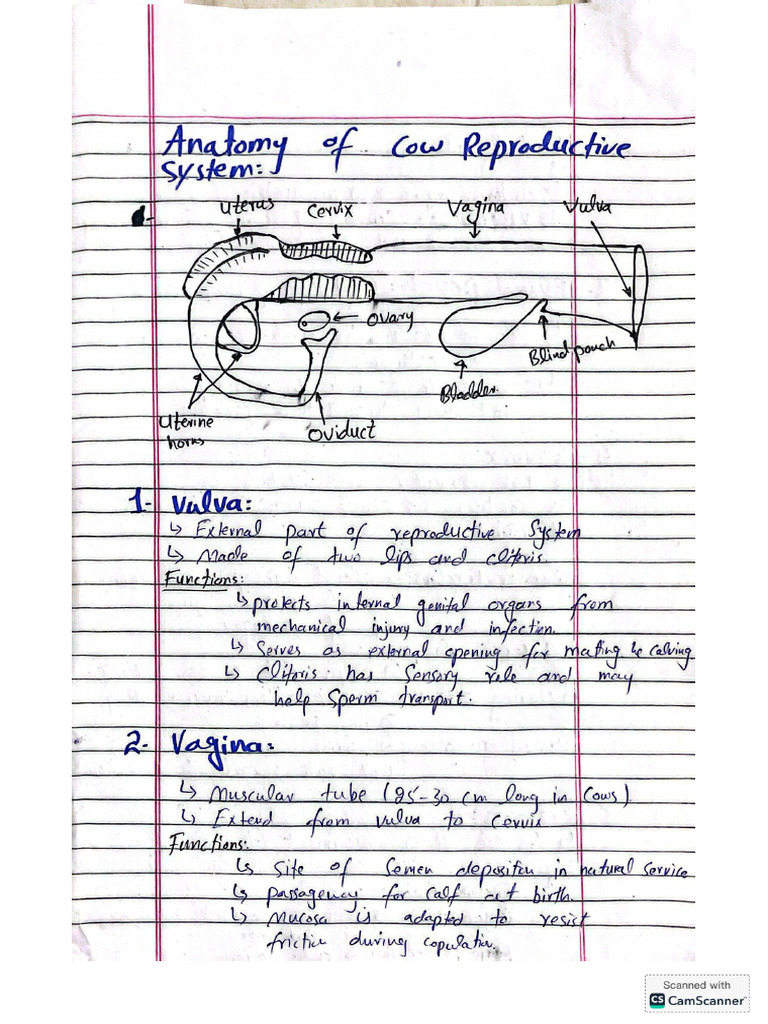 Anatomy of Cow Reproductive
System:
Uterus Cervix Vagina Vulva
Ovary
Blind pouch
Bladder.
Uterine
horns
Oviduct
1- Vulva:
↳ External part of reproductive System
↳ Made of two lips and clitoris.
Functions:
↳ protects internal genital organs from
mechanical injury and infection.
↳ Serves as external opening for mating & calving
↳ Clitoris has Sensory role and may
help Sperm transport.
2- Vagina:
↳ Muscular tube (25-30 cm long in Cows)
↳ Extend from vulva to Cervix
Functions:
↳ Site of Semen deposition in natural Service
↳ passagency for Calf at birth.
↳ Mucosa is adapted to resist
friction during copulation.
Scanned with
CS CamScanner